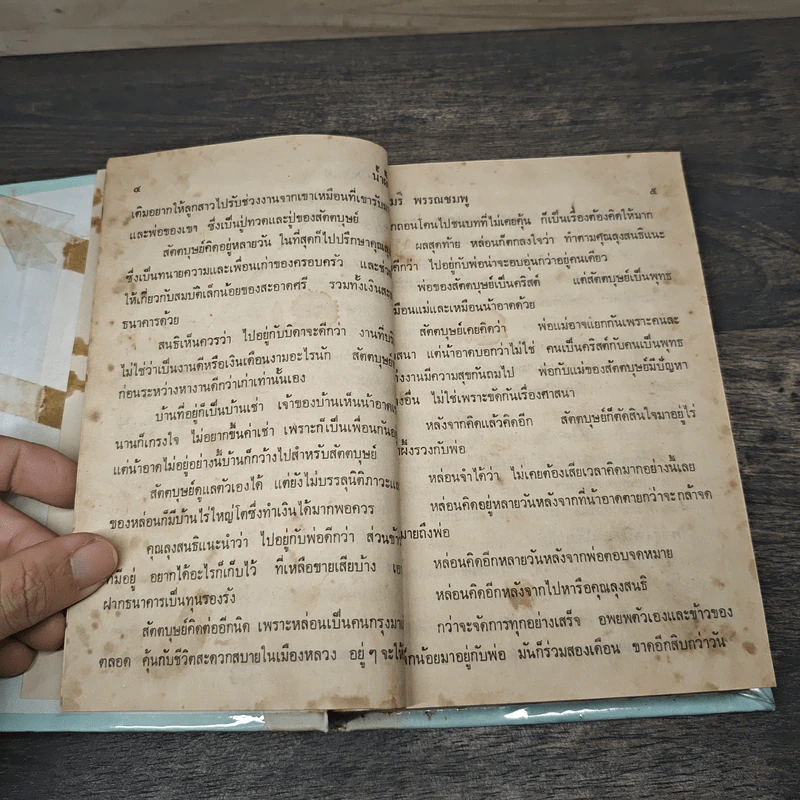 ๔
เดิมอยากให้ลูกสาวไปรับช่วงงานจากเขาเหมือนที่เขารับ
และพ่อของเขา ซึ่งเป็นปู่ทวดและปู่ของสัตตบุษย์
สัตตบุษย์คิดอยู่หลายวัน ในที่สุดก็ไปปรึกษาคุณลุง
ซึ่งเป็นทนายความและเพื่อนเก่าของครอบครัว และช่วย
ให้เกี่ยวกับสมบัติเล็กน้อยของสะอาดศรี รวมทั้งเงินสะ
ธนาคารด้วย
สนธิเห็นควรว่า ไปอยู่กับบิดาจะดีกว่า งานที่บริ
ไม่ใช่ว่าเป็นงานดีหรือเงินเดือนงามอะไรนัก สัตตบุษย์
ก่อนระหว่างหางานดีกว่าเก่าเท่านั้นเอง
บ้านที่อยู่ก็เป็นบ้านเช่า เจ้าของบ้านเห็นน้าอาด
นานก็เกรงใจ ไม่อยากขึ้นค่าเช่า เพราะก็เป็นเพื่อนกัน
แต่น้าอาดไม่อยู่อย่างนี้บ้านก็กว้างไปสำหรับสัตตบุษย์
สัตตบุษย์ดูแลตัวเองได้ แต่ยังไม่บรรลุนิติภาวะ
ของหล่อนก็มีบ้านไร่ใหญ่โตซึ่งทำเงินได้มากพอควร
คุณลุงสนธิแนะนำว่า ไปอยู่กับพ่อดีกว่า ส่วนข้า
ที่มีอยู่ อยากได้อะไรก็เก็บไว้ ที่เหลือขายเสียบ้าง เอา
ฝากธนาคารเป็นทุนรองรัง
สัตตบุษย์คิดต่ออีกนิด เพราะหล่อนเป็นคนกรุงมา
ตลอด คุ้นกับชีวิตสะดวกสบายในเมืองหลวง อยู่ ๆ จะให้
มริ พรรณชมพู
๕
ถอนโคนไปชนบทที่ไม่เคยคุ้น ก็เป็นเรื่องต้องคิดให้มาก
ผลสุดท้าย หล่อนก็ตกลงใจว่า ทำตามคุณลุงสนธิแนะ
ดีกว่า ไปอยู่กับพ่อน่าจะอบอุ่นกว่าอยู่คนเดียว
พ่อของสัตตบุษย์เป็นคริสต์ แต่สัตตบุษย์เป็นพุทธ
เหมือนแม่และเหมือนน้าอาดด้วย
สัตตบุษย์เคยคิดว่า พ่อแม่อาจแยกกันเพราะคนละ
ศาสนา แต่น้าอาดบอกว่าไม่ใช่ คนเป็นคริสต์กับคนเป็นพุทธ
แต่งงานมีความสุขกันถมไป พ่อกับแม่ของสัตตบุษย์มีปัญหา
อื่น ไม่ใช่เพราะขัดกันเรื่องศาสนา
หลังจากคิดแล้วคิดอีก สัตตบุษย์ก็ตัดสินใจมาอยู่ไร่
ผึ้งรวงกับพ่อ
หล่อนจำได้ว่า ไม่เคยต้องเสียเวลาคิดมากอย่างนี้เลย
หล่อนคิดอยู่หลายวันหลังจากที่น้าอาดตายกว่าจะกล้าจด
หมายถึงพ่อ
หล่อนคิดอีกหลายวันหลังจากพ่อตอบจดหมาย
หล่อนคิดอีกหลังจากไปหารือคุณลุงสนธิ
กว่าจะจัดการทุกอย่างเสร็จ อพยพตัวเองและข้าวของ
เล็กน้อยมาอยู่กับพ่อ มันก็ร่วมสองเดือน ขาดอีกสิบกว่าวัน